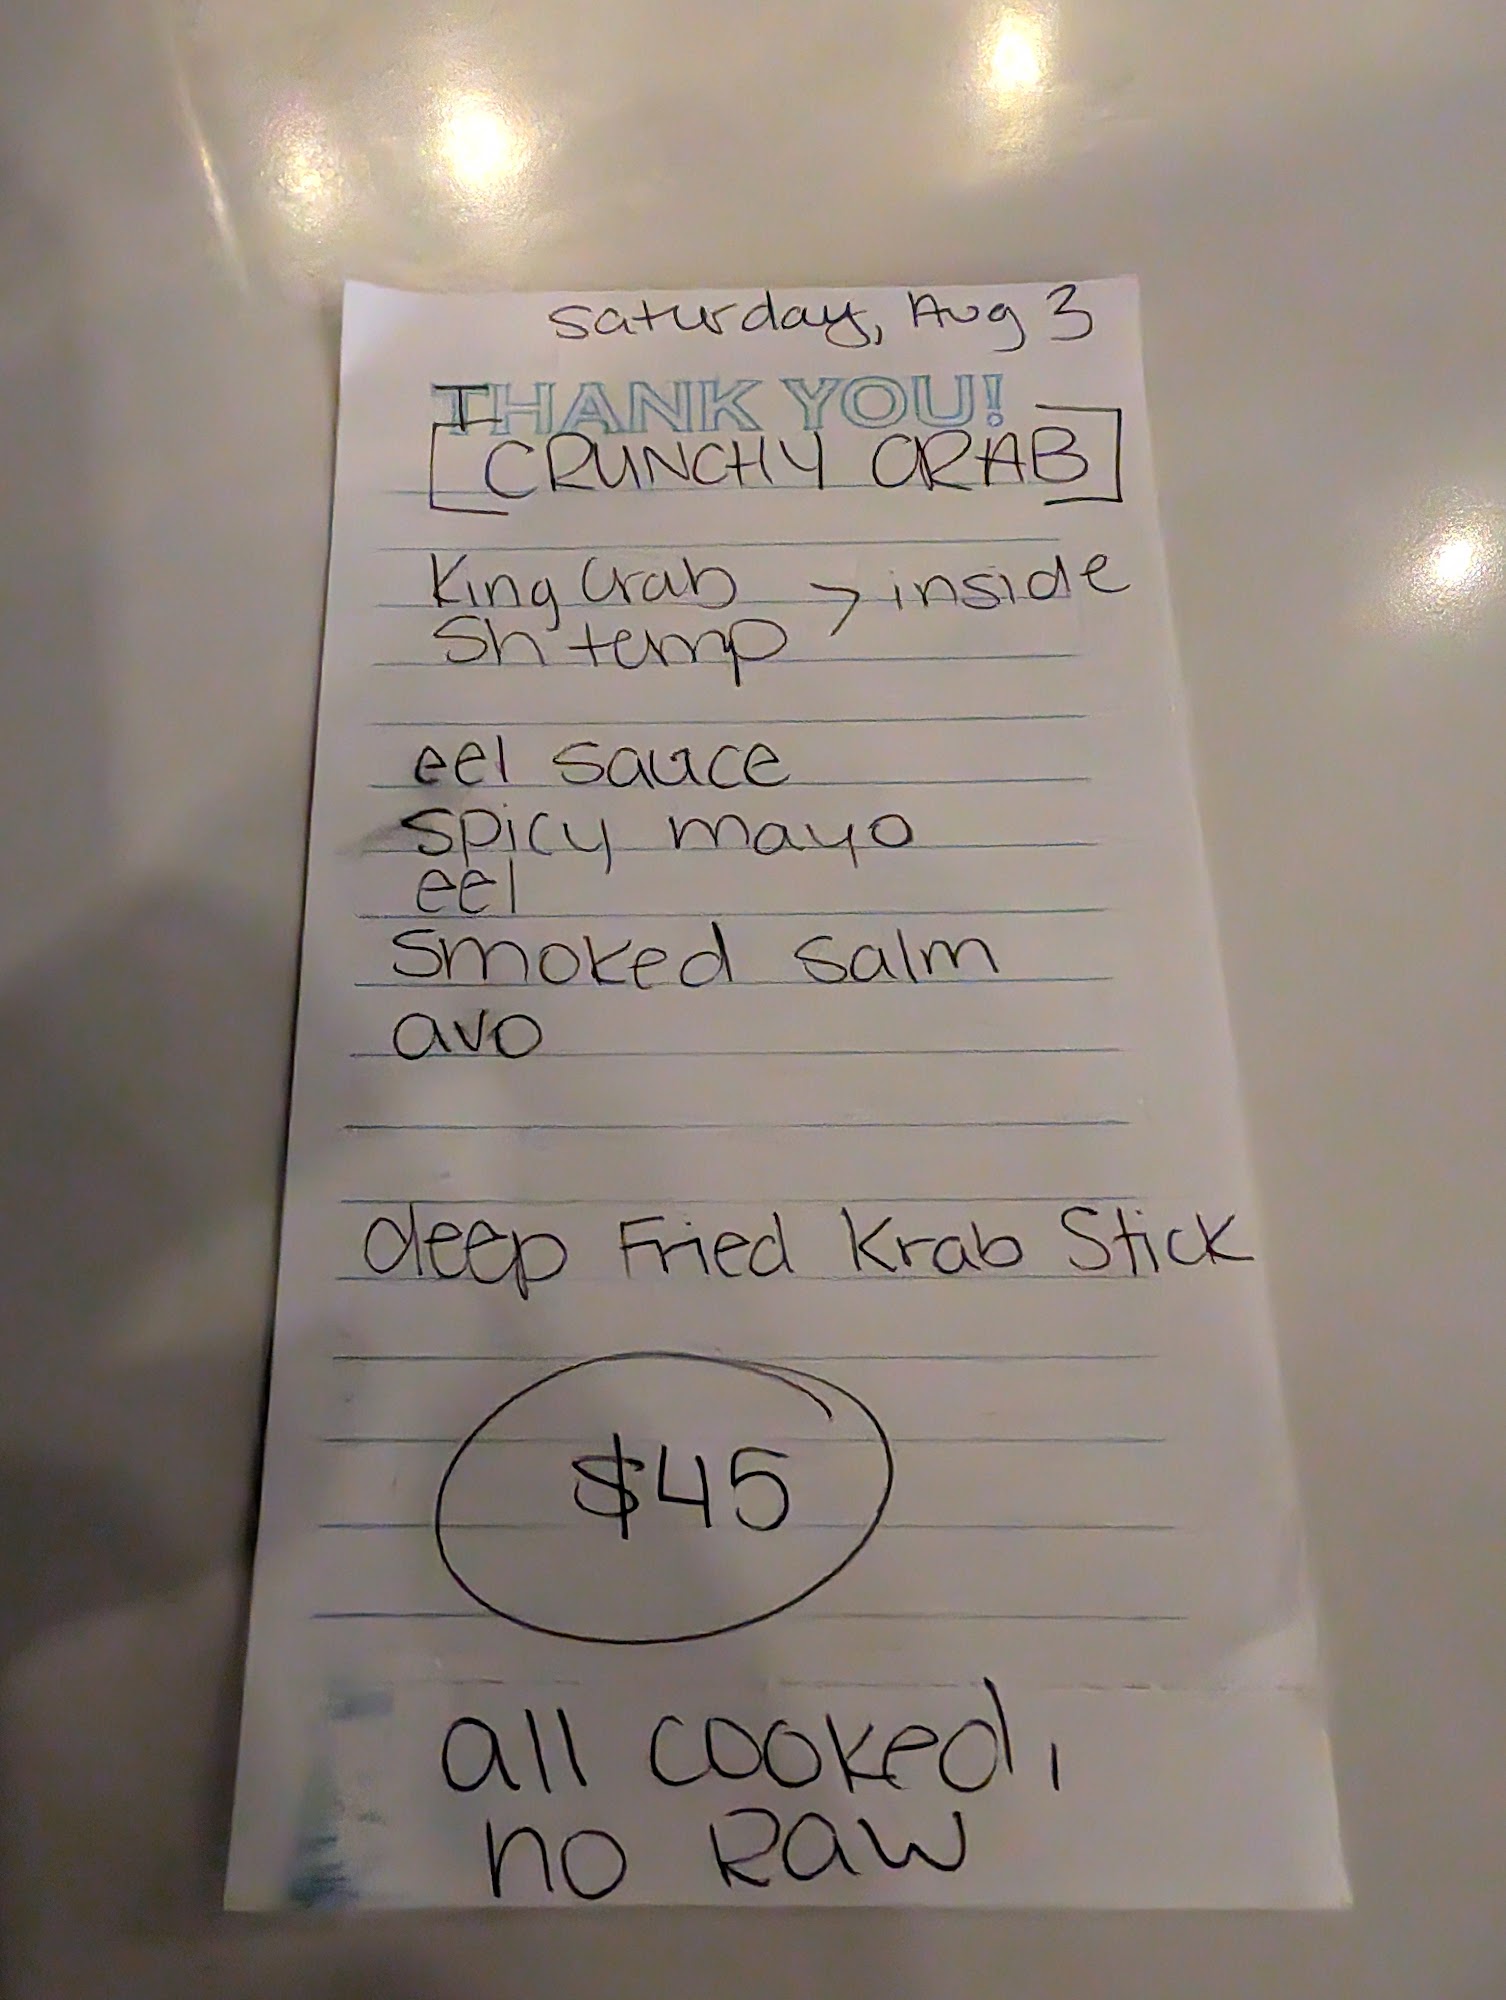 Saturday, Aug 3
THANK YOU!
CRUNCHY CRAB
King Crab > inside
Sh temp
eel sauce
spicy mayo
eel
smoked salm
avo
deep Fried Krab Stick
$45
all cooked,
no RAW